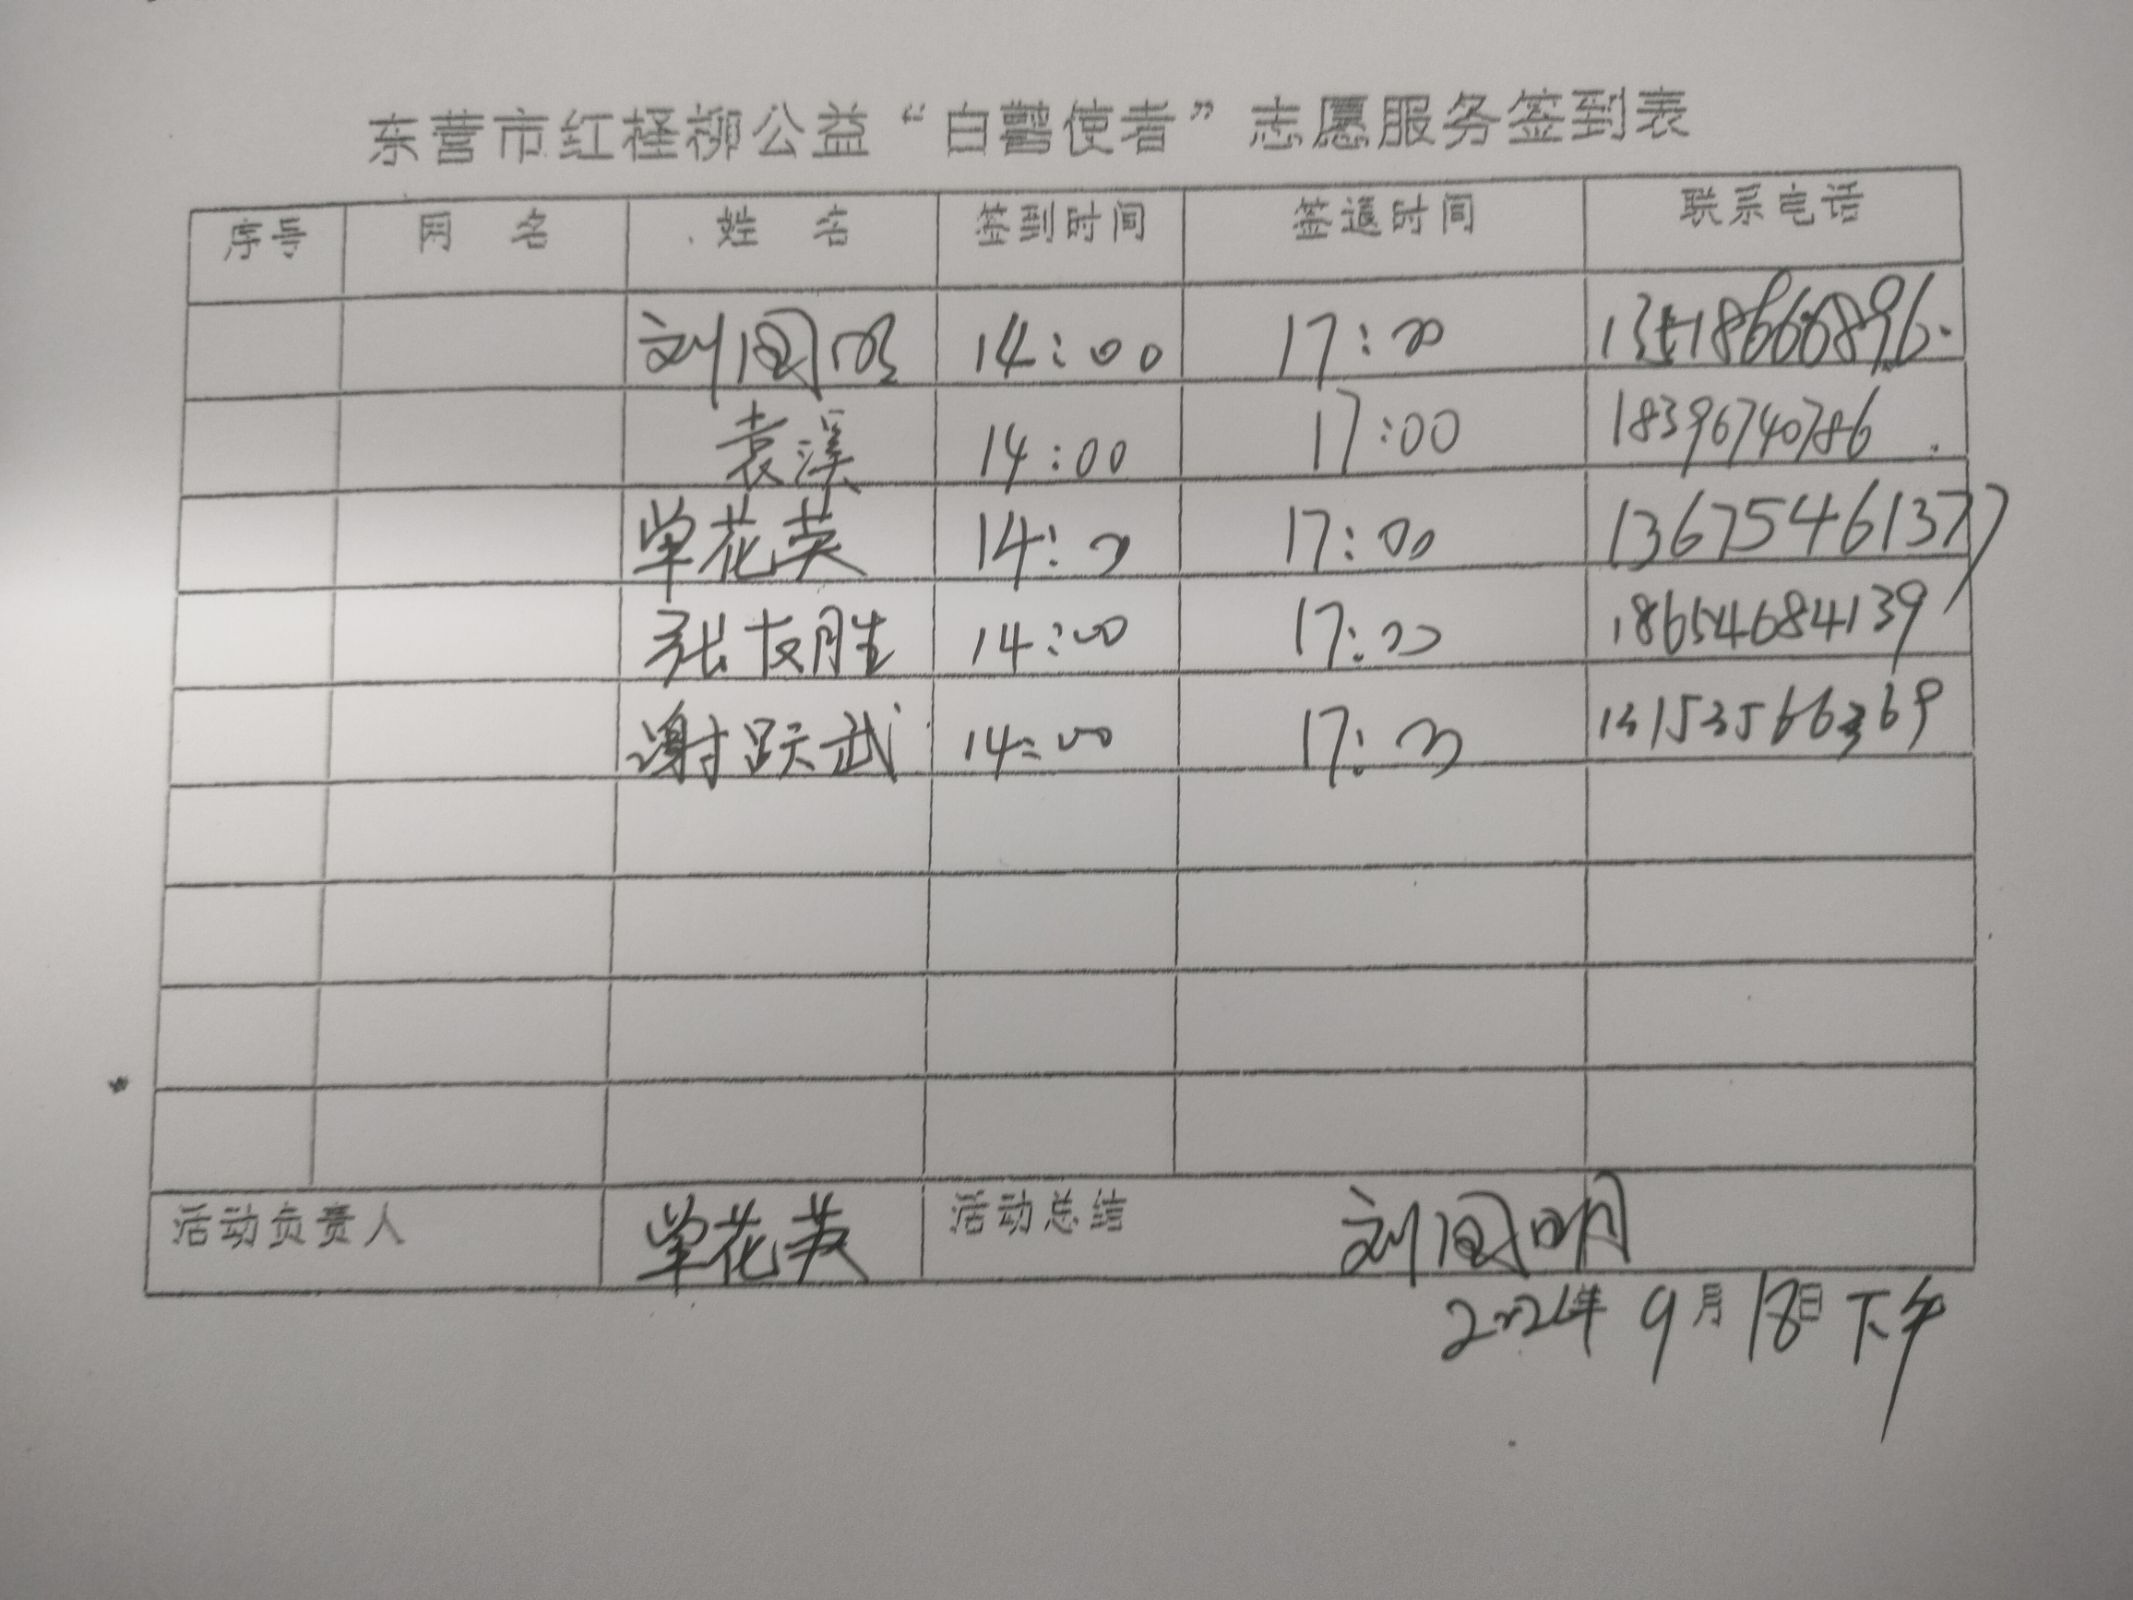 东营市红柽柳公益“白鹭使者”志愿服务签到表
序号 网名 姓名 签到时间 签退时间 联系电话
刘国明 14:00 17:00
袁溪 14:00 17:00 18396740786
单花英 14:00 17:00 13675461377
张友胜 14:00 17:00 18654684139
谢跃武 14:00 17:00 13153566369
活动负责人 单花英 活动总结 刘国明
2024年9月18日下午